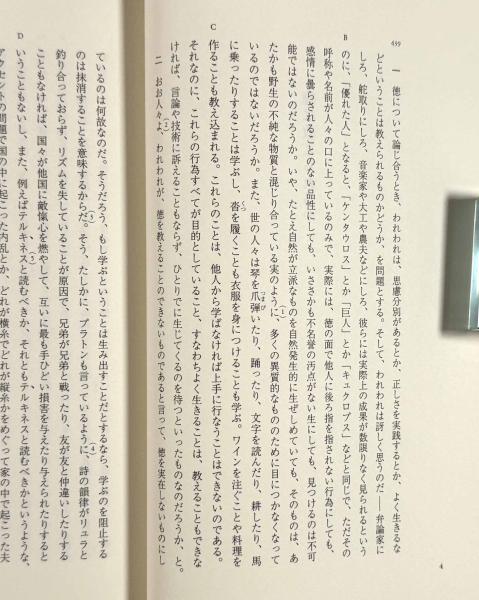 439
一　徳について論じ合うとき、われわれは、思慮分別があるとか、正しさを実践するとか、よく生きるな
どということは教えられるものかどうか、を問題とする。そして、われわれは訝しく思うのだ——弁論家に
しろ、舵取りにしろ、音楽家や大工や農夫などにしろ、彼らには実際上の成果が数限りなく見られるという
B
のに、「優れた人」となると、「ケンタウロス」とか「巨人」とか「キュクロプス」などと同じで、ただその
呼称や名前が人々の口に上っているのみで、実際には、徳の面で他人に後ろ指を指されない行為にしても、
感情に曇らされることのない品性にしても、いささかも不名誉の汚点がない生にしても、見つけるのは不可
能ではないのだろうか。いや、たとえ自然が立派なものを自然発生的に生ぜしめていても、そのものは、あ
たかも野生の不純な物質と混じり合っている実のように(1)、多くの異質的なもののために目につかなくなって
いるのではないだろうか。また、世の人々は琴を爪弾(つまび)いたり、踊ったり、文字を読んだり、耕したり、馬
に乗ったりすることは学ぶし、沓(くつ)を履くことも衣服を身につけることも学ぶ。ワインを注ぐことや料理を
C
作ることも教え込まれる。これらのことは、他人から学ばなければ上手に行なうことはできないのである。
それなのに、これらの行為すべてが目的としていること、すなわちよく生きることは、教えることもできな
ければ、言論や技術に訴えることもならず、ひとりでに生じてくるのを待つといったものなのだろうか、と。
二　おお人々よ(2)、われわれが、徳を教えることのできないものであると言って、徳を実在しないものにし
4
D
ているのは何故なのだ。そうだろう、もし学ぶということは生み出すことだとするなら、学ぶのを阻止する
のは抹消することを意味するからだ(3)。そう、たしかに、プラトンも言っているように(4)、詩の韻律がリュラと
釣り合っておらず、リズムを失していることが原因で、兄弟が兄弟と戦ったり、友が友と仲違いしたりする
こともなければ、国々が他国に敵愾心を燃やして、互いに最も手ひどい損害を与えたり与えられたりすると
いうこともないし、また、例えばテルキネスと読むべきか(5)、それともテルキネスと読むべきかというような、
アクセントの問題で国の中に起こった内乱とか、どれが横糸でどれが縦糸かをめぐって家の中で起こった夫